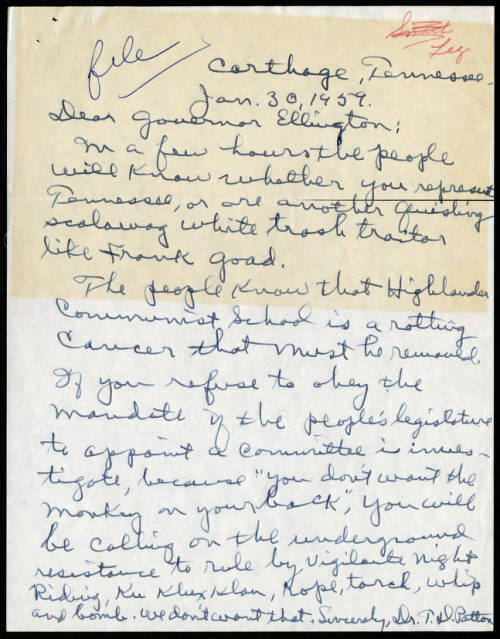 Leg
file
Carthage, Tennessee.
Jan. 30, 1959.
Dear Governor Ellington:
In a few hours the people
will know whether you represent
Tennessee, or are another Quisling
scalawag white trash traitor
like Frank Goad.
The people know that Highlander
Communist School is a rotting
Cancer that must be removed.
If you refuse to obey the
mandate of the people's legislature
to appoint a committee is inves-
tigate, because "you don't want the
monkey on your back", you will
be calling on the underground
resistance to rule by Vigilante night
Riding, Ku Klux Klan, Rope, torch, whip
and bomb. We don't want that. Sincerely, Dr. T. D. Patton